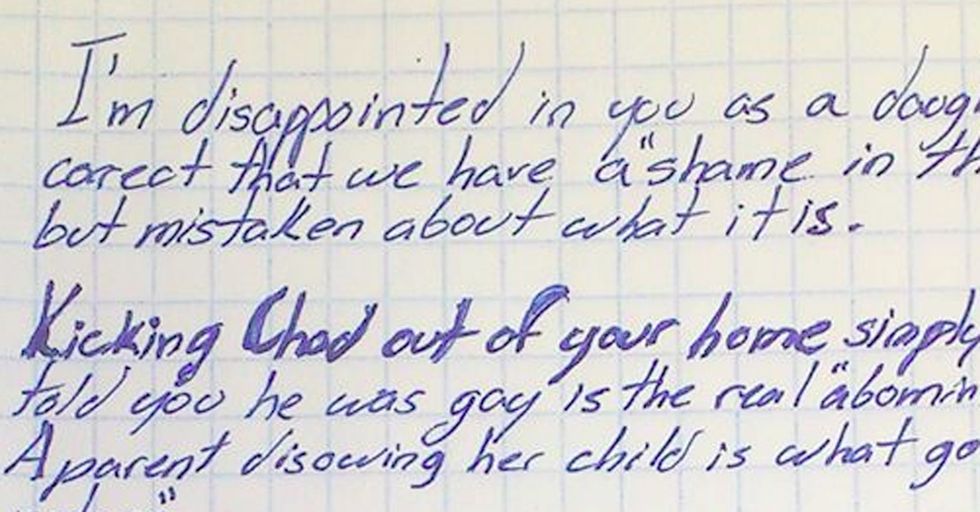 I'm disappointed in you as a daug
correct that we have a "shame in th
but mistaken about what it is.
Kicking Chad out of your home simply
told you he was gay is the real "abomin
A parent disowing her child is what go
"